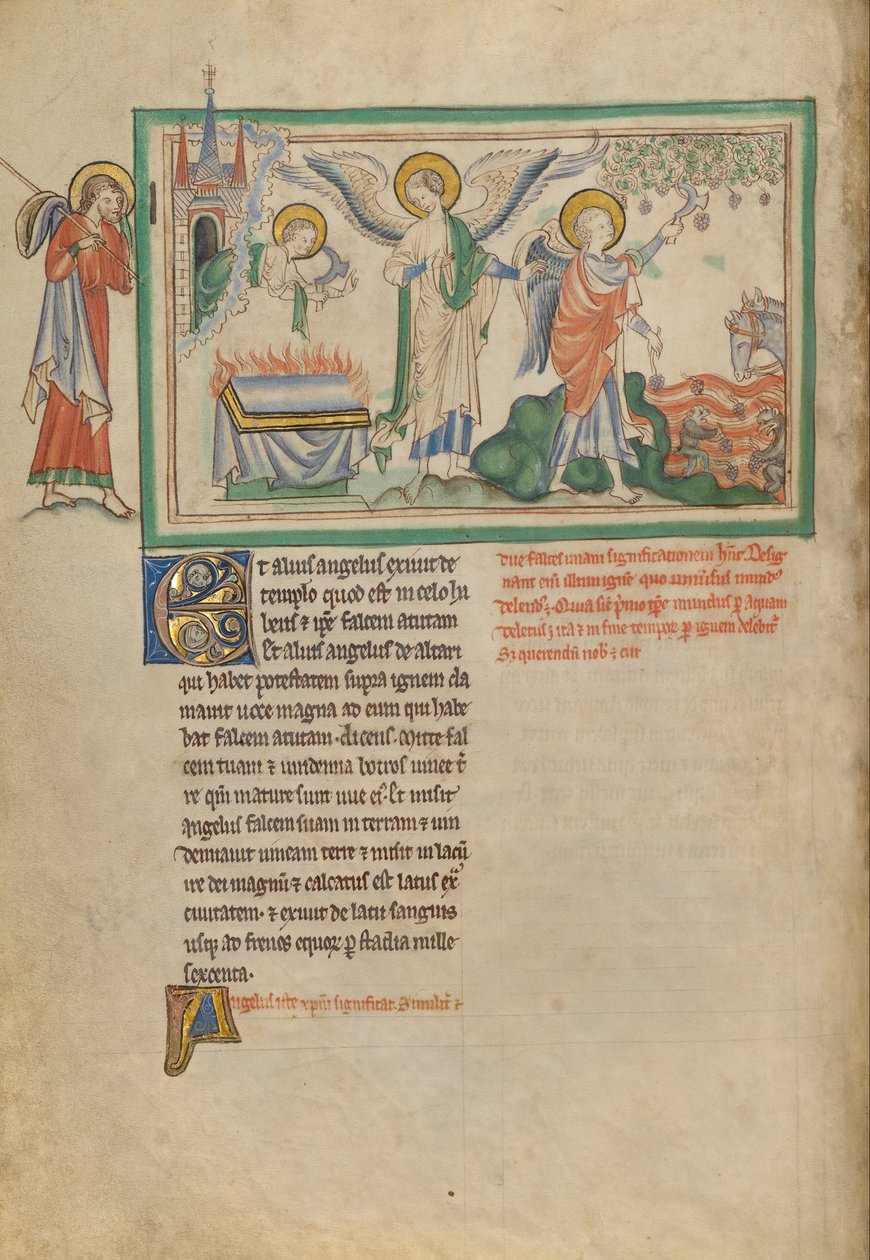 Et alius angelus exiuit de
templo quod est in celo ha
bens ⁊ ip̄e falcem acutam
Et alius angelus de altari
qui habet potestatem supra ignem cla
mauit uoce magna ad eum qui habe
bat falcem acutam. dicens. Mitte fal
cem tuam ⁊ uindemia botros uinee t̄
re qm̄ mature sunt uue eꝰ. Et misit
angelus falcem suam in terram ⁊ uin
demiauit uineam terre ⁊ misit in lacū
ire dei magnū ⁊ calcatus est lacus ex̄
ciuitatem. ⁊ exiuit de lacu sanguis
usqꝫ ad frenos equoꝝ ꝑ stadia mille
sexcenta.
Angelus iste xp̄m significat. Similit̄ ⁊
due falces unam significationem hn̄t. Desig
nant eni᷒ illum ignē quo uniuersus mund᷒
delendꝰ ē. Quia sic̄ pͥmo tp̄e mundus ꝑ aquam
deletus ē ita ⁊ in fine tempoꝝ ꝑ ignem delebit᷑
Sꝫ querendū nob̄ ē cur